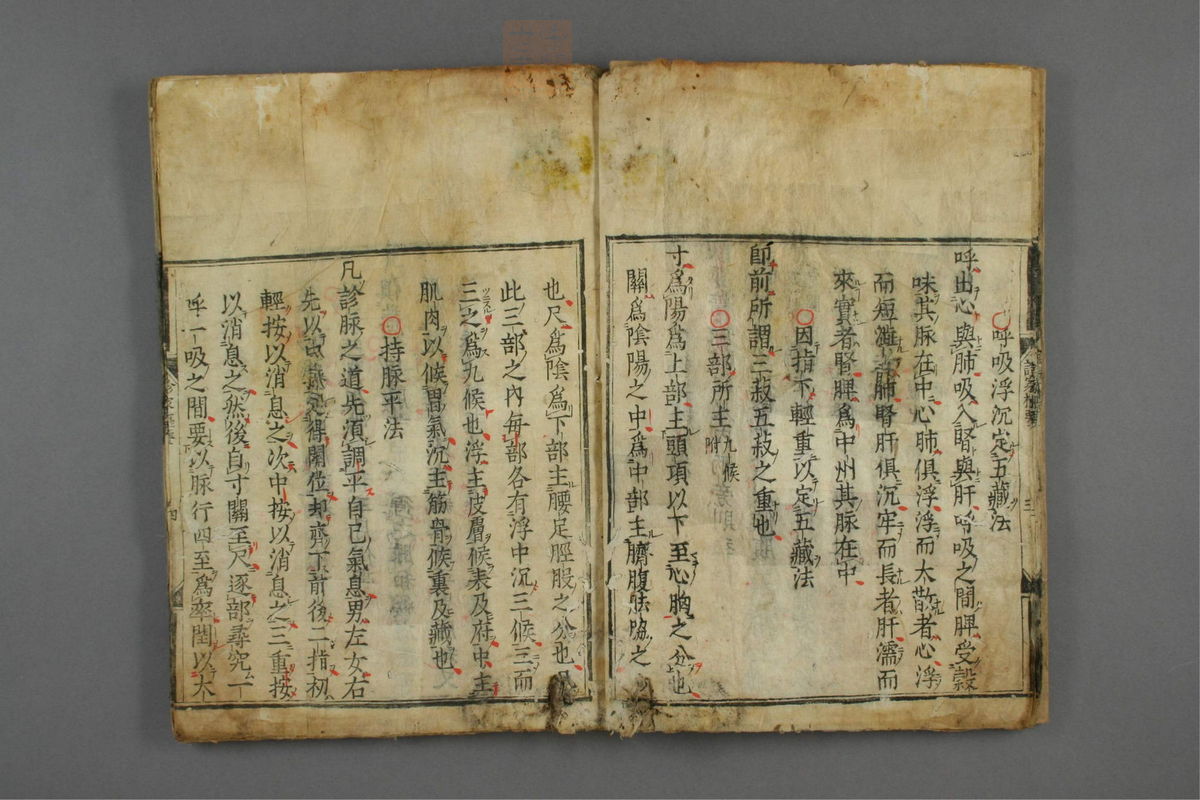 ○呼吸浮沉定五藏法
呼出心與肺吸入腎與肝呼吸之間脾受穀
味其脉在中心肺俱浮浮而大散者心浮
而短濇者肺腎肝俱沉牢而長者肝濡而
來實者腎脾爲中州其脉在中
○因指下輕重以定五藏法
即前所謂三菽五菽之重也
○三部所主九候附
寸爲陽爲上部主頭項以下至心胸之分也
關爲陰陽之中爲中部主臍腹胠脇之
也尺爲陰爲下部主腰足脛股之分也凡
此三部之內每部各有浮中沉三候三而
三之爲九候也浮主皮膚候表及府中主
肌肉以候胃氣沉主筋骨候裏及藏也
○持脉平法
凡診脉之道先須調平自己氣息男左女右
先以定得關位却齊下前後二指初
輕按以消息之次中按以消息之三重按
以消息之然後自寸關至尺逐部尋究一
呼一吸之間要以脉行四至爲率閏以太